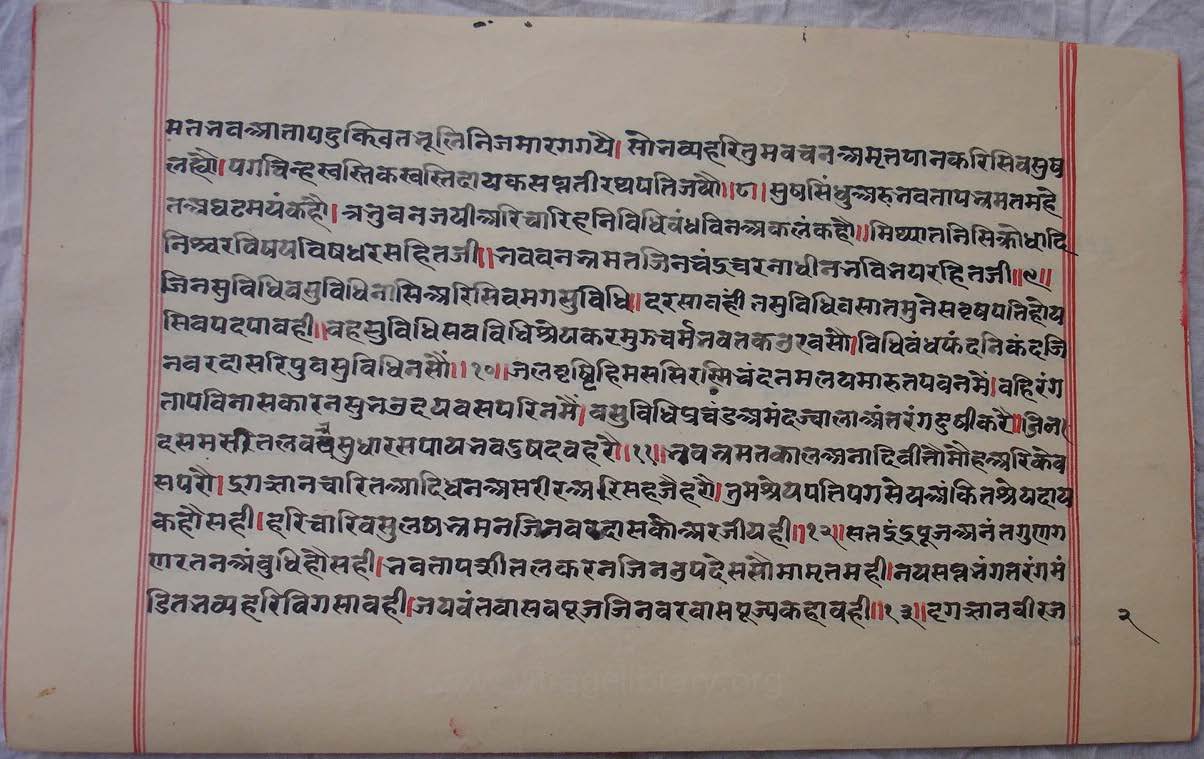 मततनवआतापदुकिवतभूलिनिजमारगगयै। सोभव्यहरितुमवचनअमृतपानकरिसिवसुष
लह्यौ। पगचिन्हस्वस्तिकस्वस्तिदायकसप्ततीरथपतिजयौ॥८॥ सुषसिंधुअरुभवतापभ्रमतमहे
तअघटमयंकहौ। त्रभुवनजयीअरिचारिहनिविधिबंधविनअकलंकहौ॥ मिथ्यातनिसिक्रोधादि
निश्चरविषयविषधरसहितजी॥ भववनभ्रमतजिनचंद्रचरनाधीनभविभयरहितजी॥९॥
जिनसुविधिवसुविधिनासिअरिसिवमगसुविधि॥ दरसावही तसुविधिवसातमुनेसवृषपतिहोय
सिवपदपावही॥ वहसुविधिसबविधिश्रेयकरमुझचर्मभवतकउरवसौ। विधिबंधफंदनिकंदजि
नवरदासरिपुवसुविधिनसौं॥१०॥ जलवृष्टिहिमससिरस्मिचंदनमलयमारुतपवनमैं। वहिरंग
तापविनासकारनसुनउदयवसपरिनमैं। वसुविधिप्रचंडअमंदज्वालाअंतरंगदुषीकरै॥ जिन
दसमसीतलवचसुधारसपायभवदुषदवहरौ॥११॥ भवभ्रमतकालअनादिवीतौमोहअरिकेव
सपरौ। द्रगज्ञानचारितआदिधनअसरीरअरिसहजैहरौ। तुमश्रेयपतिपगसेयअंकितश्रेयदाय
कहौसही। हरिचारिवसुलषभ्रमनजिनवरदासकीअरजीयही॥१२॥ सतइंद्रपूजअनंतगुणग
णरतनअंबुधिहौसही। भवतापशीतलकरनजिनउपदेससौमामृतमही। नयसप्तभंगतरंगमं
डितभव्यहरिविगसावही। जयवंतवासवपूजजिनवरवासपूज्यकहावही॥१३॥ दृगज्ञानवीरज
२